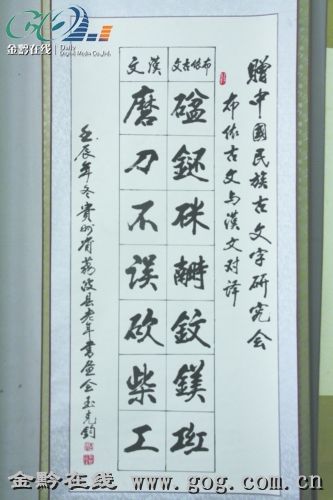 金黔在线
Daily
Digital Media Co.,Ltd
贈中國民族古文字研究会
布依古文与漢文对译
布依古文
漢文
磨刀不误砍柴工
壬辰年冬贵州省荔波县老年書畫会玉克鈞
金黔在线 www.gog.com.cn